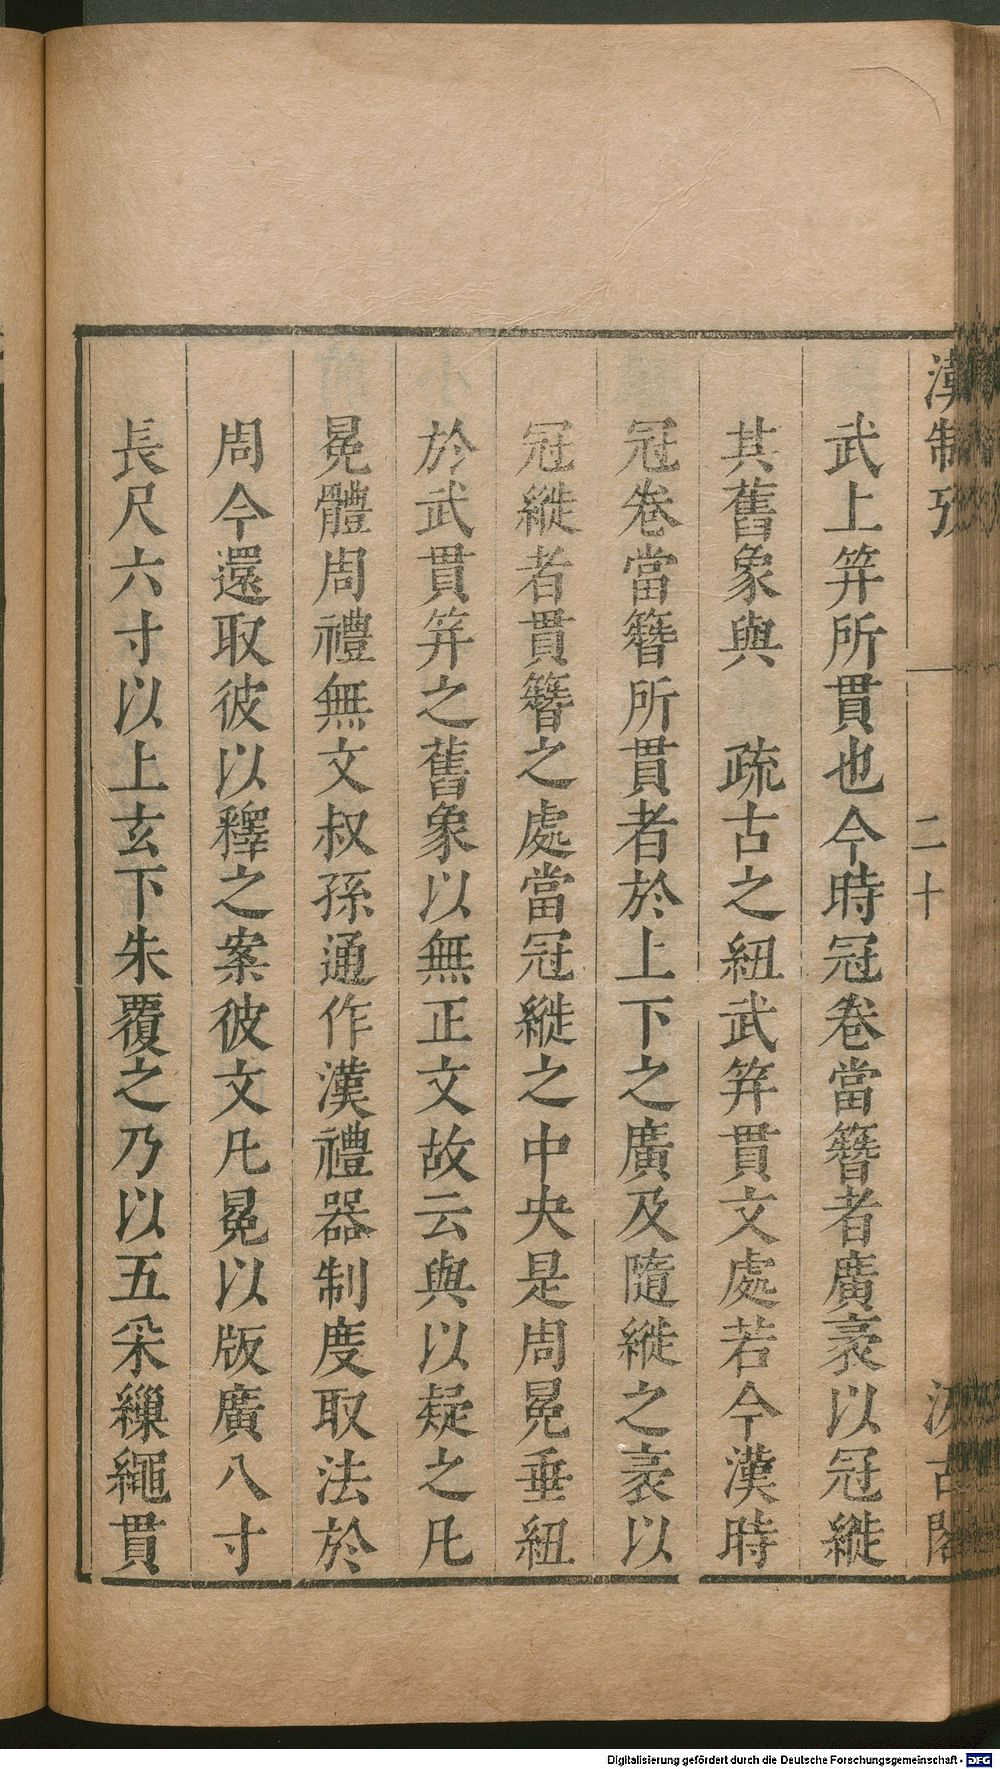 漢制攷
二十
汲古閣
武上筓所貫也今時冠卷當簪者廣袤以冠縰
其舊象與　疏古之紐武筓貫文處若今漢時
冠卷當簪所貫者於上下之廣及隨縰之袤以
冠縰者貫簪之處當冠縰之中央是周冕垂紐
於武貫筓之舊象以無正文故云與以疑之凡
冕體周禮無文叔孫通作漢禮器制度取法於
周今還取彼以釋之案彼文凡冕以版廣八寸
長尺六寸以上玄下朱覆之乃以五采繅繩貫
Digitalisierung gefördert durch die Deutsche Forschungsgemeinschaft - DFG